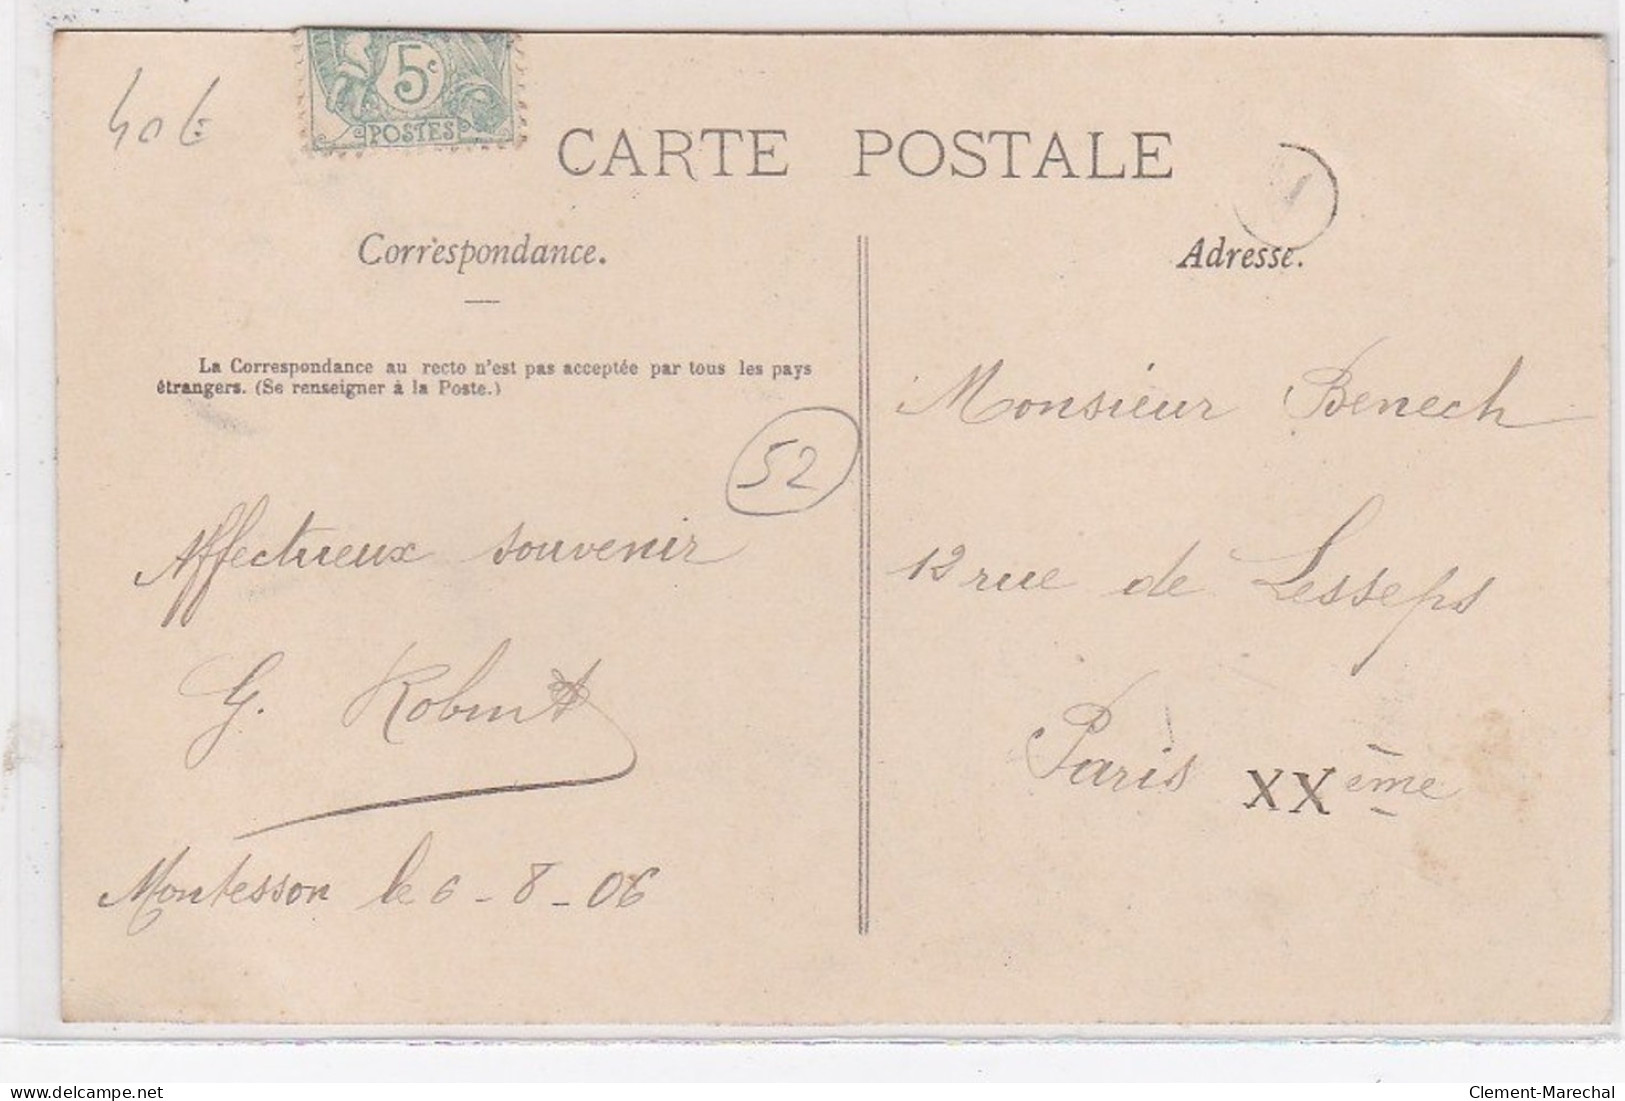 40€
5c
POSTES
CARTE POSTALE
1
Correspondance.
Adresse.
La Correspondance au recto n'est pas acceptée par tous les pays
étrangers. (Se renseigner à la Poste.)
52
Monsieur Benech
12 rue de Lesseps
Paris XXème
Affectueux souvenir
G. Robert
Montesson le 6-8-06
delcampe.net
Clement-Marechal